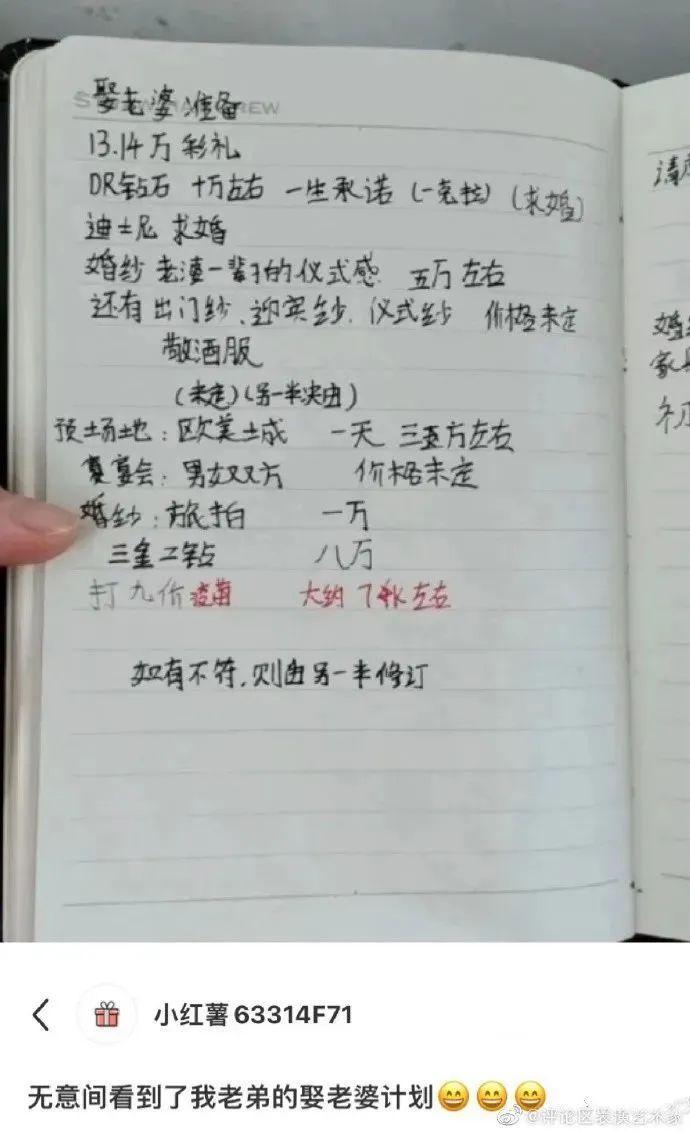 娶老婆准备
13.14万彩礼
DR钻石 十万左右 一生承诺 (一克拉) (求婚)
迪士尼 求婚
婚纱 老婆一辈子的仪式感 五万左右
还有出门纱、迎宾纱、仪式纱 价格未定
敬酒服
(未定)(另一半决由)
预土场地:欧美土成 一天 三五万左右
宴会:男女双方 价格未定
婚纱:旅拍 一万
三金二钻 八万
打九价疫苗 大约7k左右
如有不符,则由另一半修订
清
婚
家具
初
小红薯63314F71
无意间看到了我老弟的娶老婆计划😄😄😄
@评论区表演艺术家